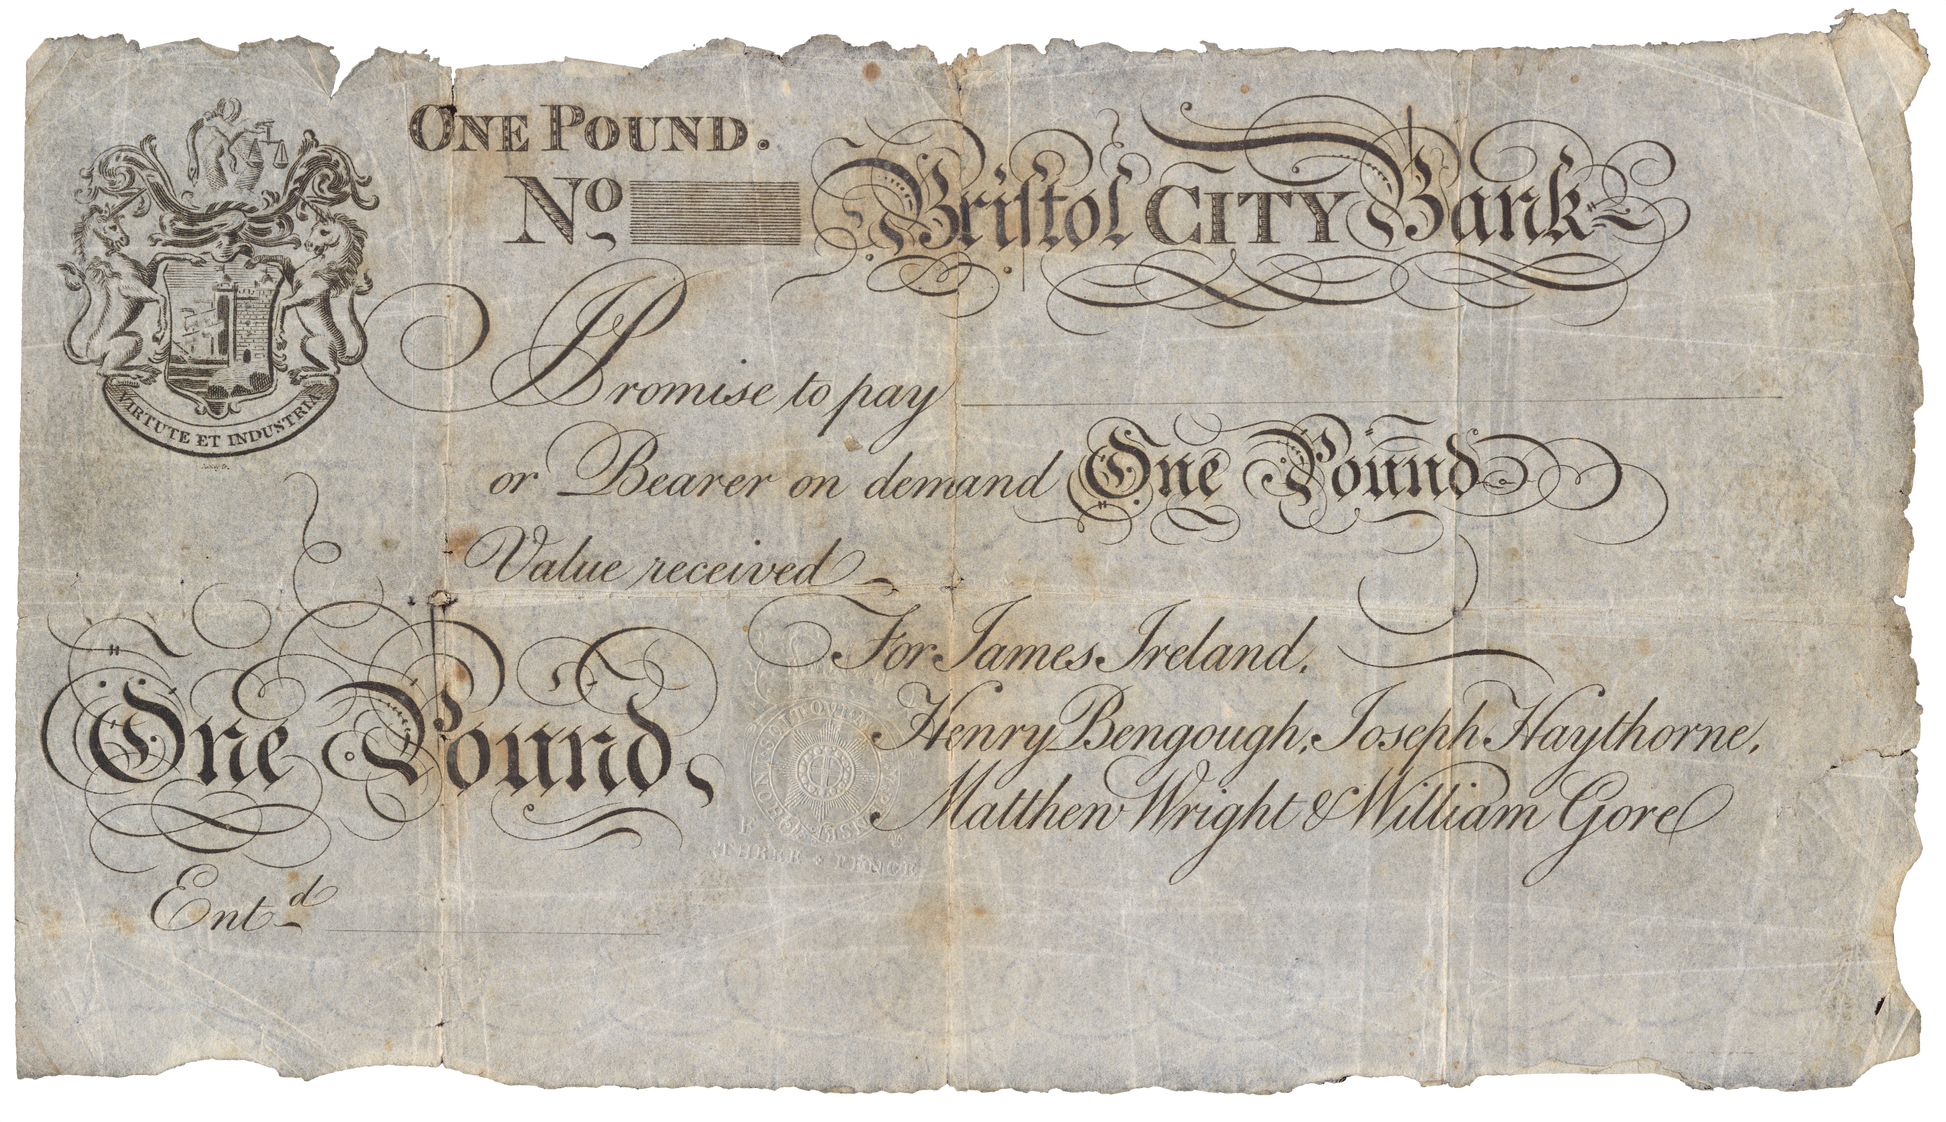 ONE POUND.
No
Briſtol CITY Bank
VIRTUTE ET INDUSTRIA
I Promise to pay
or Bearer on demand One Pound
Value received
For James Ireland,
Henry Bengough, Joseph Haythorne,
Matthew Wright & William Gore
One Pound,
HONI SOIT QUI MAL Y PENSE
THREE PENCE
Entd